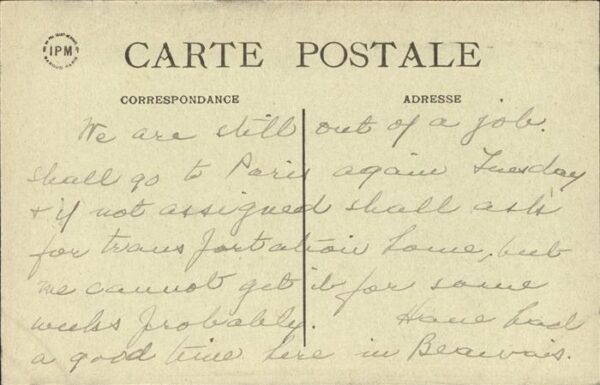 IPM
CARTE POSTALE
CORRESPONDANCE
ADRESSE
We are still out of a job.
Shall go to Paris again Tuesday
+ if not assigned shall ask
for transportation home, but
we cannot get it for some
weeks probably. Have had
a good time here in Beauvais.